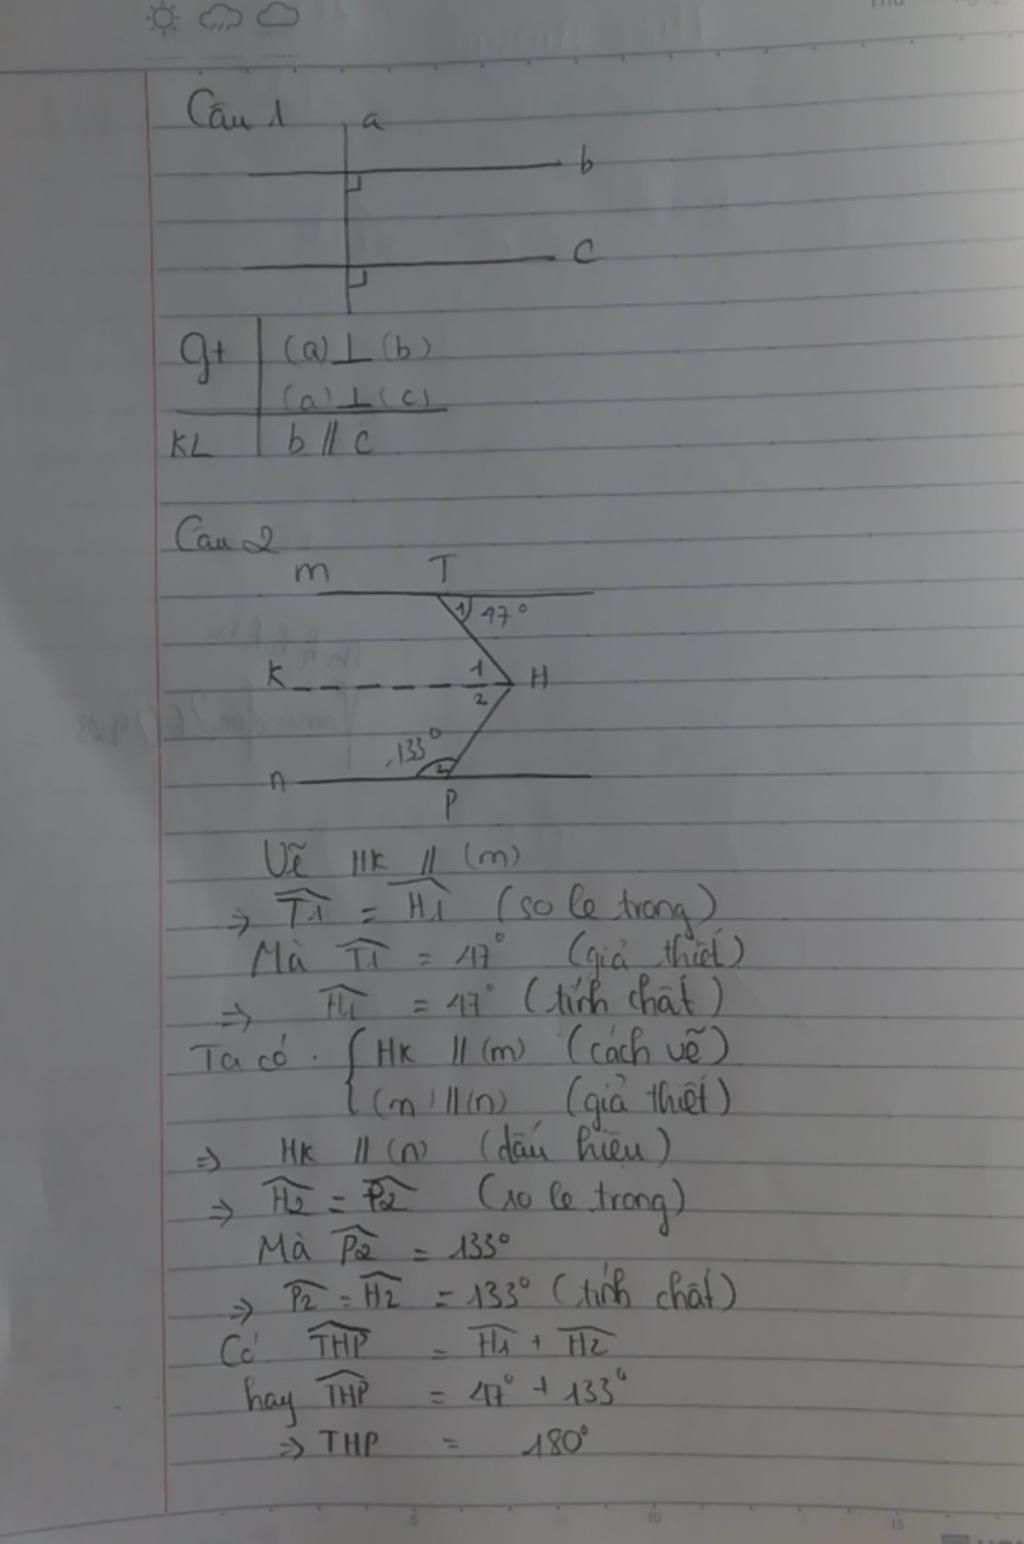 Câu 1
a
b
C
gt (a) ⊥ (b)
(a) ⊥ (c)
KL b // c
Câu 2
m T
1 47°
K 1 H
2
133°
2
n
P
Vẽ HK // (m)
⇒ T1 = H1 (so le trong)
Mà T1 = 47° (giả thiết)
⇒ H1 = 47° (tính chất)
Ta có: { HK // (m) (cách vẽ)
(m) // (n) (giả thiết)
⇒ HK // (n) (dấu hiệu)
⇒ H2 = P2 (so le trong)
Mà P2 = 133°
⇒ P2 = H2 = 133° (tính chất)
Có THP = H1 + H2
hay THP = 47° + 133°
⇒ THP = 180°
5 10 15